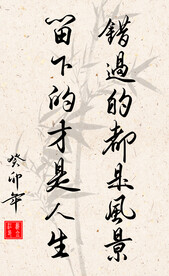 錯過的都是風景
留下的才是人生
癸卯年